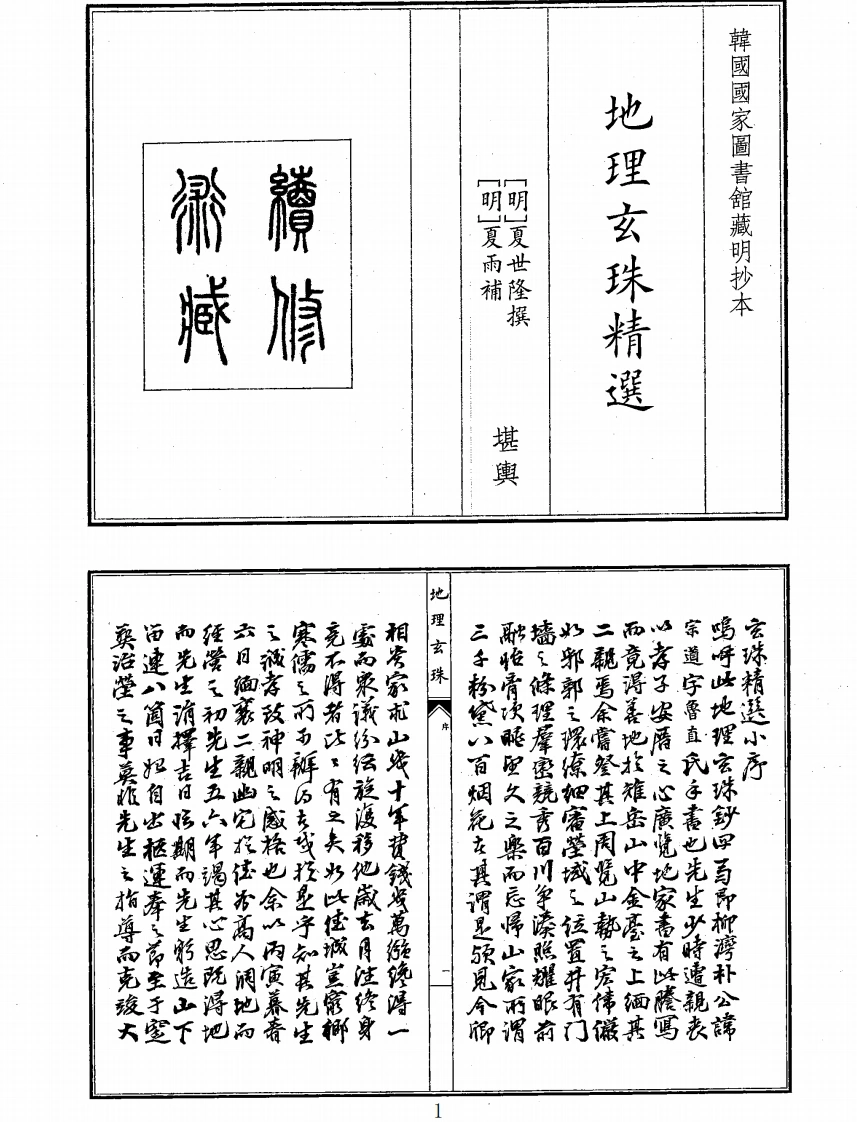 韓國國家圖書館藏明抄本
地理玄珠精選
[明]夏世隆撰
[明]夏雨補
堪輿
續修
術藏
玄珠精選小序
嗚呼此地理玄珠鈔四䢍即柳灣朴公諱
宗道字魯直氏手書也先生少時遭親丧
以孝子安厝之心廣覽地家書有此謄寫
而竟得善地於雉岳山中金臺之上緬其
二親焉余嘗登其上周覽山勢之宏偉儼
如郛郭之環繚細審塋域之位置井有门
墻之條理羣巒競秀百川爭湊照耀眼前
融怡胷次眺望久之樂而忘歸山家所謂
三千粉黛八百烟花者其謂是歟見今卿
地理玄珠
序
一
相宰家求山幾十年費錢幾萬緡纔得一
處而衆議紛紜旋復移他歲去月徃終身
竟不得者比比有之矣如此佳城豈窮鄉
寒儒之所可辦乃於是乎知其先生
之誠孝致神明之感格也余以丙寅暮春
六日緬襄二親幽宅於高人洞地而
經營之初先生五六年竭其心思既得地
而先生消擇吉日臨期而先生躬造山下
留連八箇日始自出柩運奉之節至于窆
葬治塋之事莫非先生之指導而克竣大
1